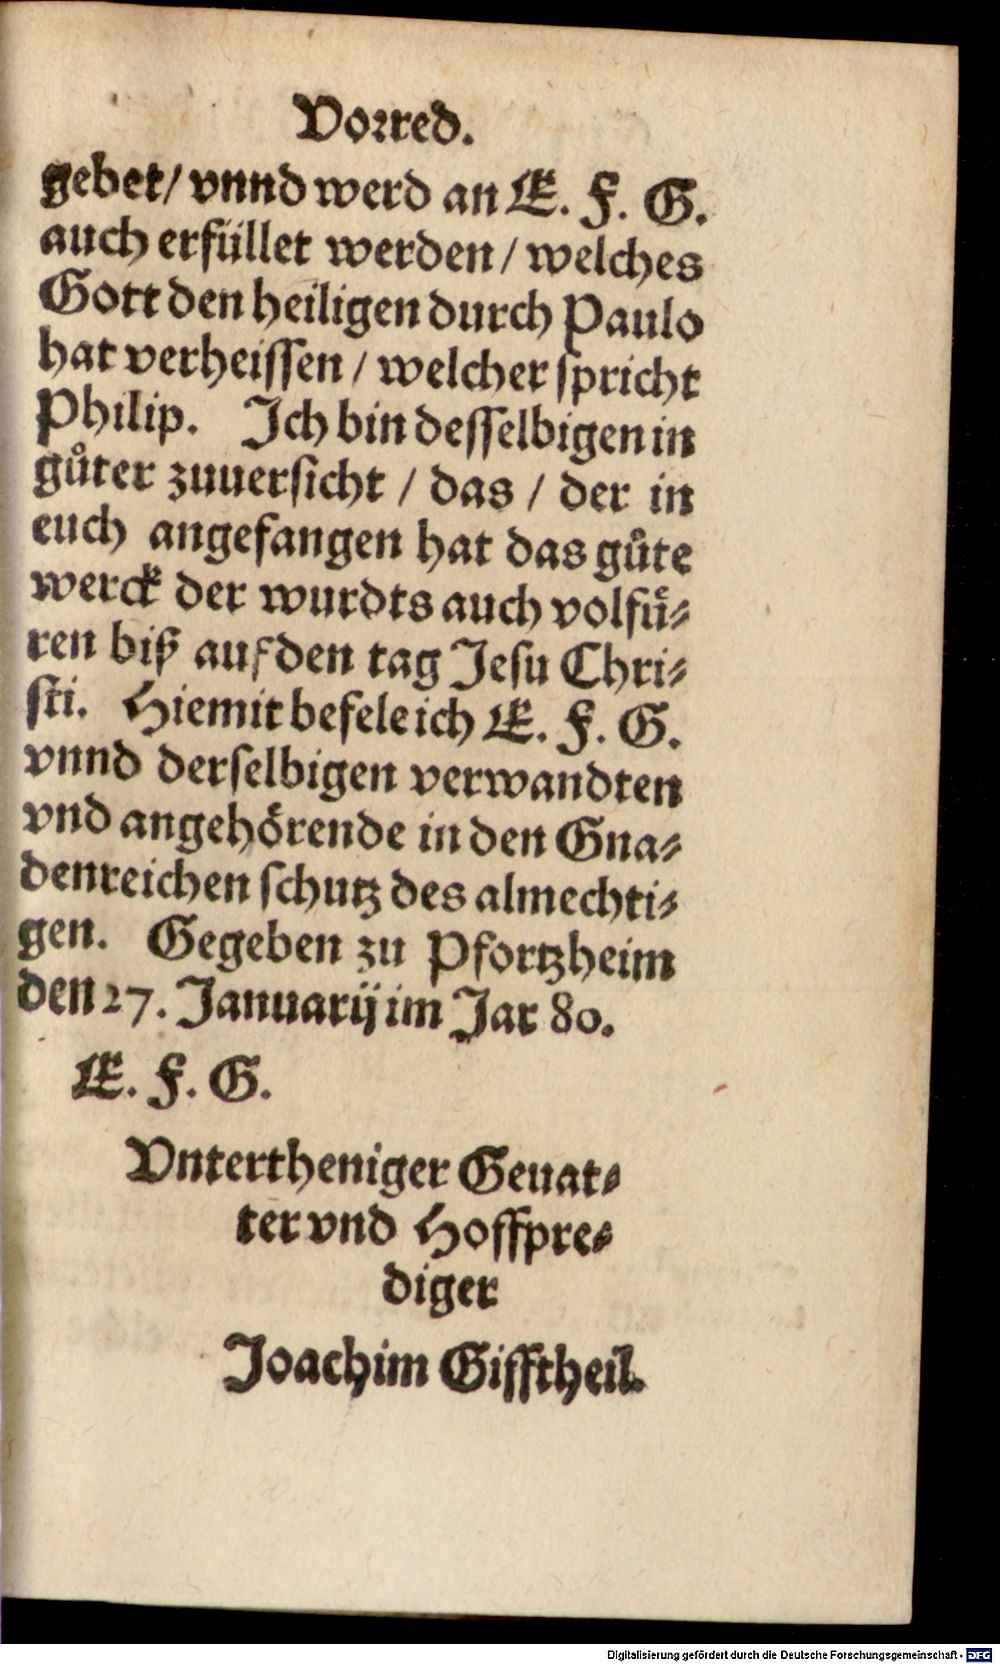 Vorred.
gebet/ vnnd werd an E. F. G.
auch erfüllet werden/ welches
Gott den heiligen durch Paulo
hat verheissen/ welcher spricht
Philip. Ich bin desselbigen in
gůter zuuersicht / das / der in
euch angefangen hat das gůte
werck der wurdts auch volfü-
ren biß auf den tag Jesu Chri-
sti. Hiemit befele ich E. F. G.
vnnd derselbigen verwandten
vnd angehörende in den Gna-
denreichen schutz des almechti-
gen. Gegeben zu Pfortzheim
den 27. Januarij im Jar 80.
E. F. G.
Vntertheniger Geuat-
ter vnd Hoffpre-
diger
Joachim Gifftheil.
Digitalisierung gefördert durch die Deutsche Forschungsgemeinschaft - DFG